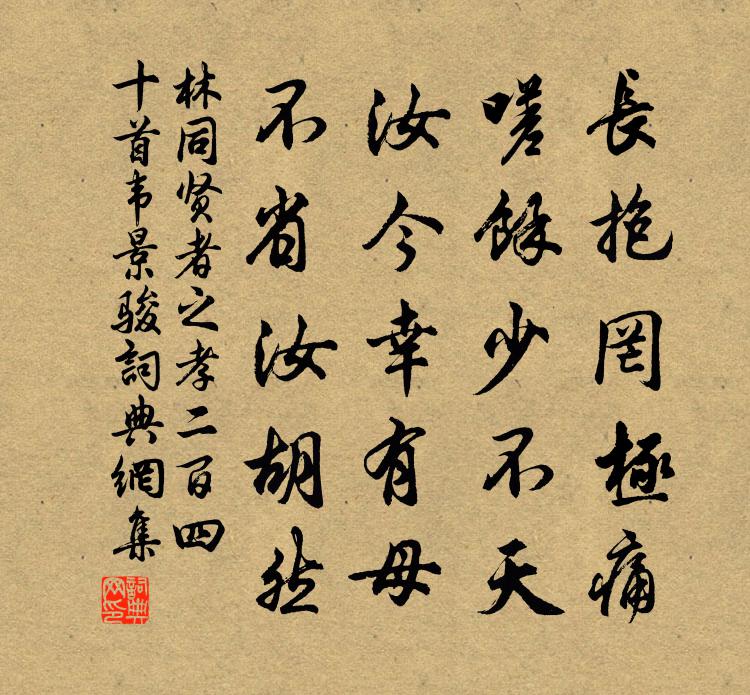 長抱罔極痛
嗟餘少不天
汝今幸有母
不省汝胡然
林同贤者之孝二百四
十首韦景骏詞典網集
詞典
网印